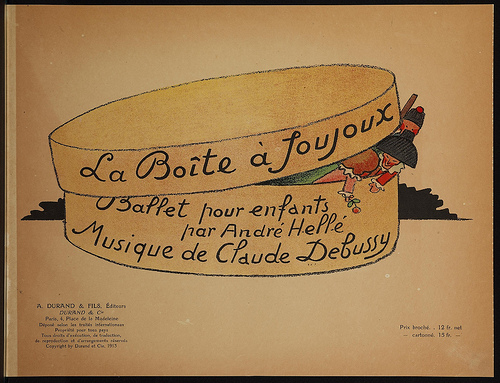 La Boîte à Joujoux
Ballet pour enfants
par André Hellé
Musique de Claude Debussy
A. DURAND & FILS, Éditeurs
DURAND & Cie
Paris, 4, Place de la Madeleine
Déposé selon les traités internationaux
Propriété pour tous pays
Tous droits d'exécution, de traduction,
de reproduction et d'arrangements réservés
Copyright by Durand et Cie, 1913
Prix broché. . 12 fr. net
— cartonné. 15 fr. —